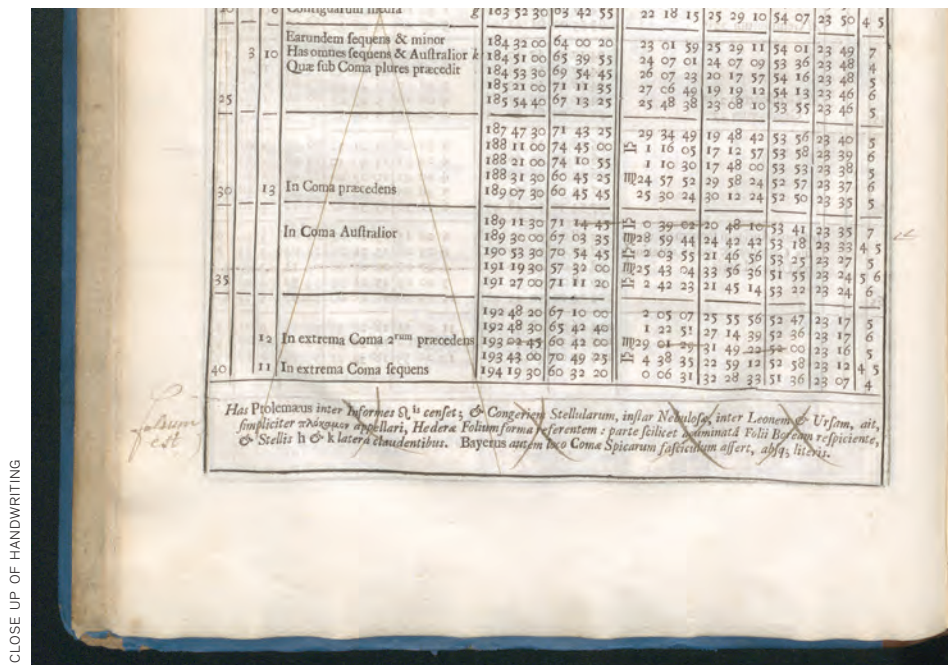 Contiguarum media g 183 52 30 63 42 55 22 18 15 25 29 10 54 07 23 50 4 5
Earundem sequens & minor 184 32 00 64 00 20 23 01 59 25 29 11 54 01 23 49 7
3 10 Has omnes sequens & Australior k 184 51 00 65 39 55 24 07 01 24 07 09 53 36 23 48 4
Quæ sub Coma plures præcedit 184 53 30 69 54 45 26 07 23 20 17 57 54 16 23 48 5
185 21 00 71 11 35 27 06 49 19 19 12 54 13 23 46 6
25 185 54 40 67 13 25 25 48 38 23 08 10 53 55 23 46 5
187 47 30 71 43 25 29 34 49 19 48 42 53 56 23 40 5
188 11 00 74 45 00 ♎ 1 16 05 17 12 57 53 58 23 39 6
188 21 00 74 10 55 1 10 30 17 48 00 53 53 23 38 5
188 31 30 60 45 25 ♍ 24 57 52 29 58 24 52 57 23 37 6
30 13 In Coma præcedens 189 07 30 60 45 45 25 30 24 30 12 24 52 50 23 35 5
189 11 30 71 14 45 ♎ 0 39 02 20 48 10 53 41 23 35 7
In Coma Australior 189 30 00 67 03 35 ♍ 28 59 44 24 42 42 53 18 23 33 4 5
190 53 30 70 54 45 ♎ 2 03 55 21 46 56 53 25 23 27 5
191 19 30 57 32 00 ♍ 25 43 04 33 56 36 51 55 23 24 5 6
35 191 27 00 71 11 20 ♎ 2 42 23 21 45 14 53 22 23 24 6
192 48 20 67 10 00 2 05 07 25 55 56 52 47 23 17 5
192 48 30 65 42 40 1 22 51 27 14 39 52 36 23 17 6
12 In extrema Coma 2rum præcedens 193 02 45 60 42 00 ♍ 29 01 29 31 49 22 52 00 23 16 5
193 43 00 70 49 25 ♎ 4 38 35 22 59 12 52 58 23 12 4 5
40 11 In extrema Coma sequens 194 19 30 60 32 20 0 06 31 32 28 33 51 36 23 07 4
Has Ptolemæus inter Informes ♌ is censet; & Congeriem Stellularum, instar Nebulosæ, inter Leonem & Ursam, ait,
simpliciter πλόκαμον appellari, Hederæ Folium forma referentem: parte scilicet acuminatâ Folii Boream respiciente,
& Stellis h & k latera claudentibus. Bayerus autem loco Comæ Spicarum fasciculum assert, absq; literis.
falsum
est
CLOSE UP OF HANDWRITING